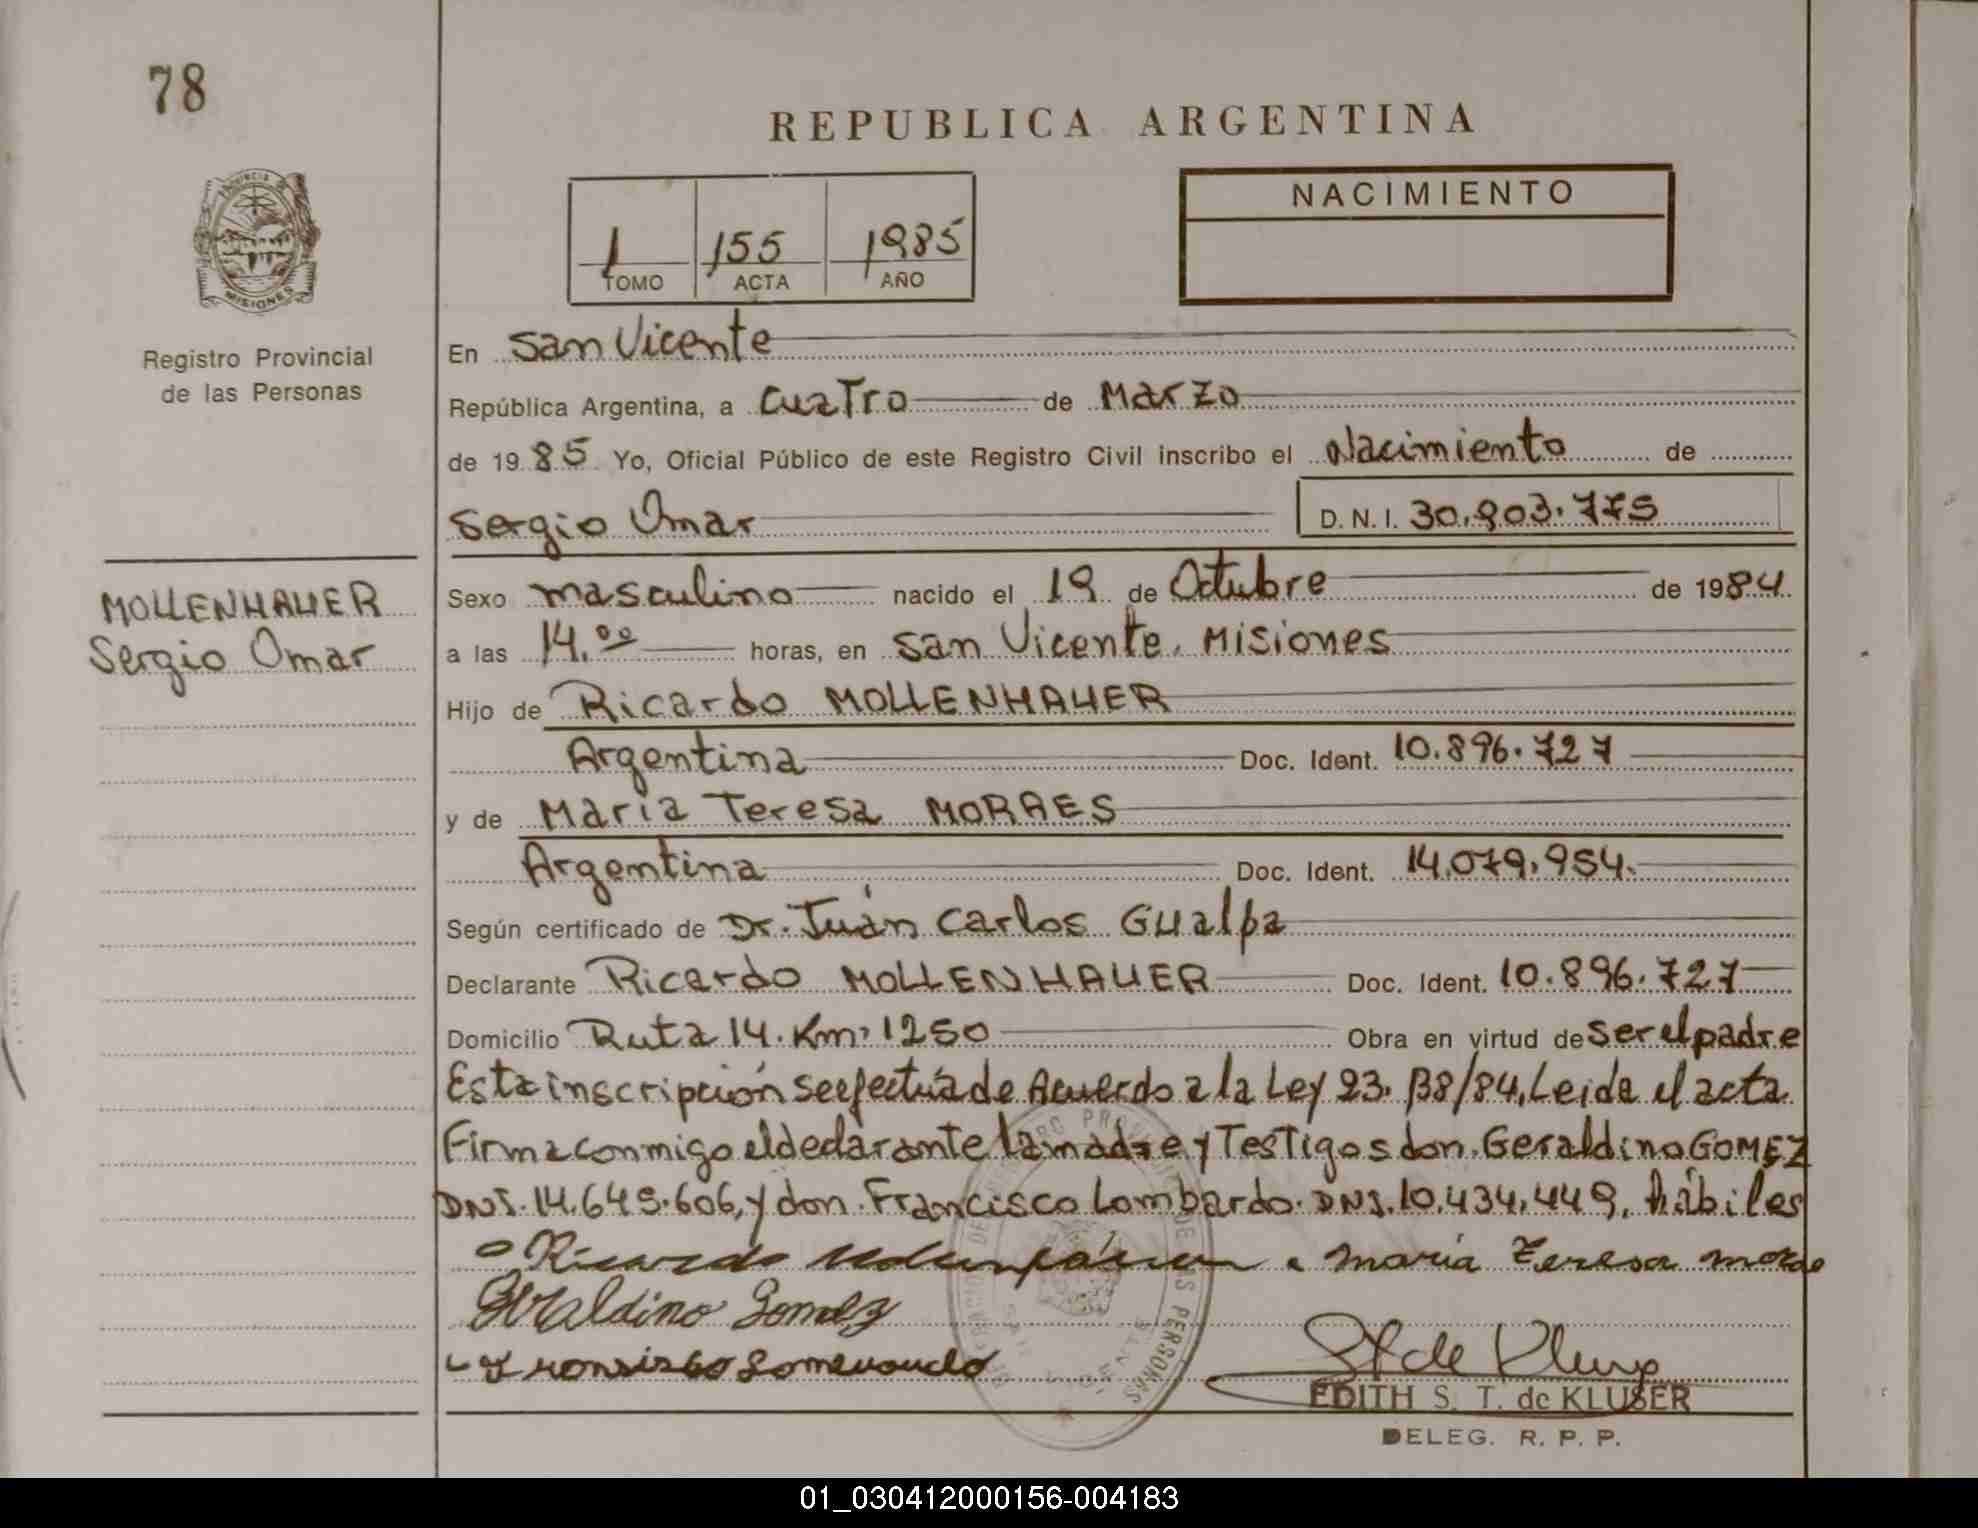 78
REPUBLICA ARGENTINA
PROVINCIA DE
MISIONES
Registro Provincial
de las Personas
1 155 1985
TOMO ACTA AÑO
NACIMIENTO
En San Vicente
República Argentina, a cuatro de Marzo
de 1985 Yo, Oficial Público de este Registro Civil inscribo el Nacimiento de
Sergio Omar D. N. I. 30.903.775
MOLLENHAUER
Sergio Omar
Sexo masculino nacido el 19 de Octubre de 1984
a las 14.00 horas, en San Vicente, Misiones
Hijo de Ricardo MOLLENHAUER
Argentina Doc. Ident. 10.896.727
y de Maria Teresa MORAES
Argentina Doc. Ident. 14.079.954.
Según certificado de Dr. Juán Carlos Gualpa
Declarante Ricardo MOLLENHAUER Doc. Ident. 10.896.727
Domicilio Ruta 14. Km. 1250 Obra en virtud de ser el padre
Esta inscripción se efectúa de Acuerdo a la Ley 23.138/84, Leida el acta
Firma conmigo el declarante la madre y Testigos don. Geraldino GOMEZ
DNI. 14.649.606, y don. Francisco Lombardo. DNI. 10.434.449, hábiles
Ricardo Maria Teresa
Geraldino Gomez
EDITH S. T. de KLUSER
DELEG. R. P. P.
01_030412000156-004183